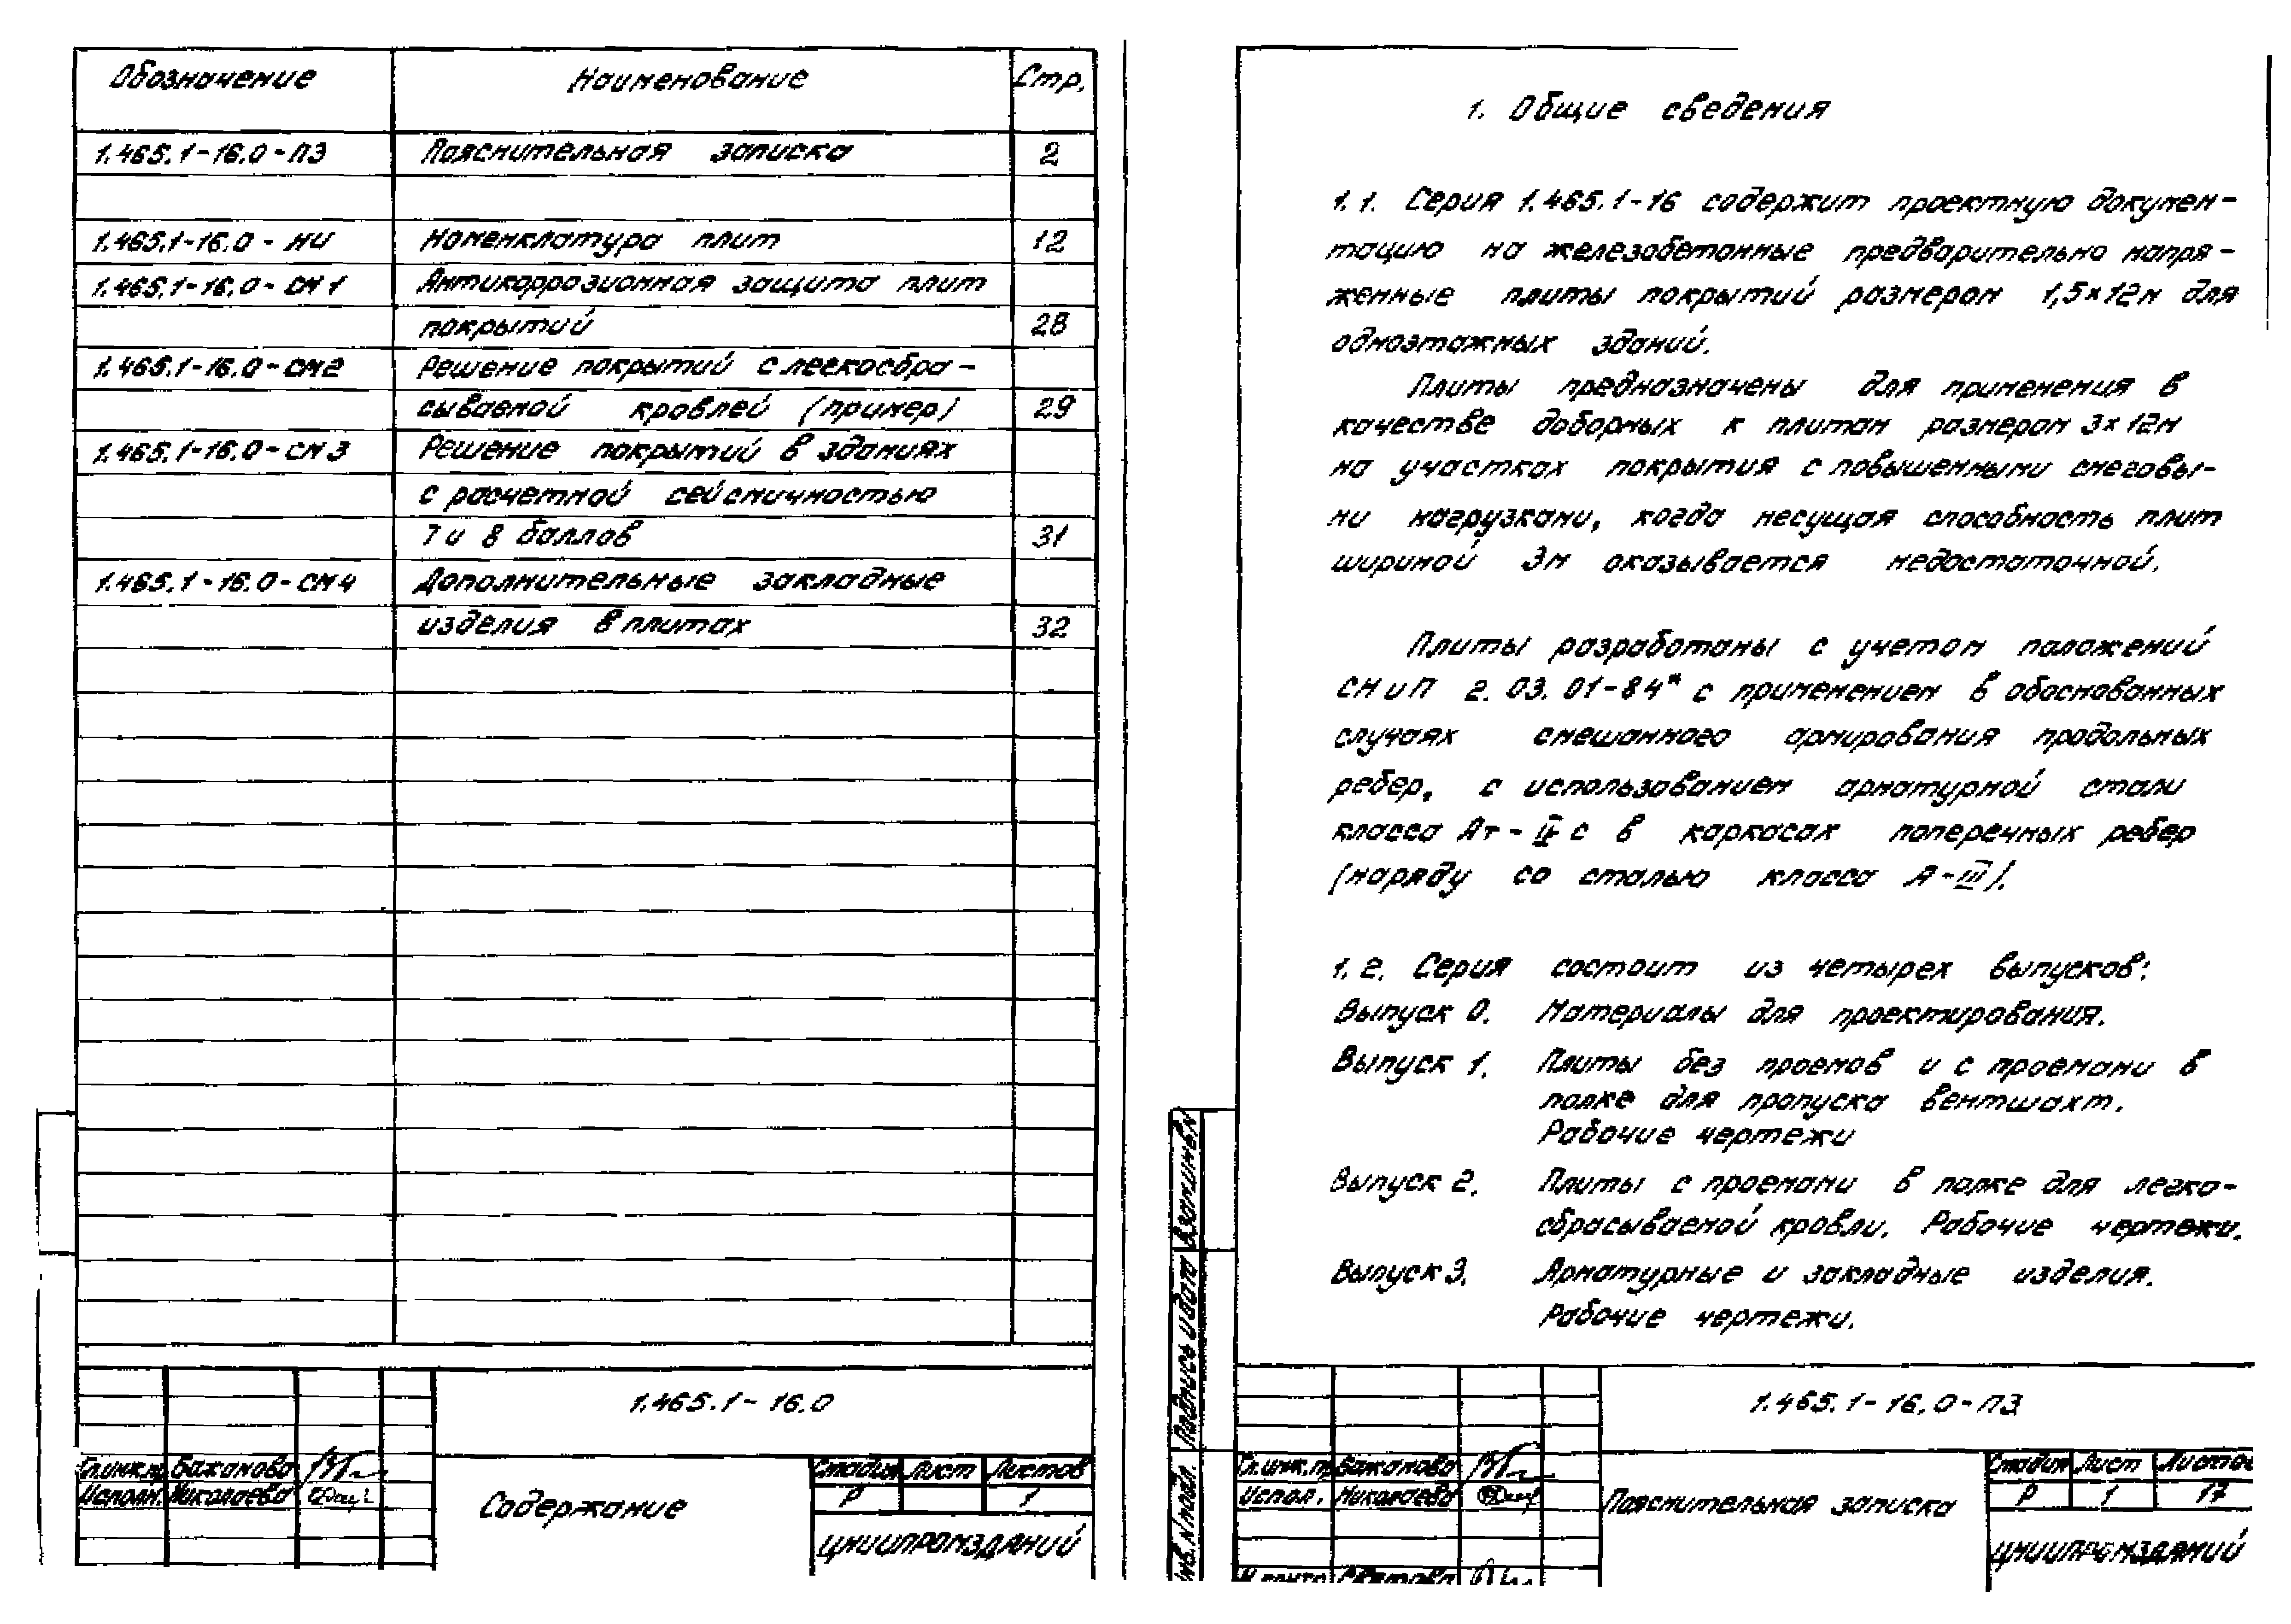 Обозначение Наименование Стр.
1.465.1-16.0-ПЗ Пояснительная записка 2
1.465.1-16.0-НИ Номенклатура плит 12
1.465.1-16.0-СМ1 Антикоррозионная защита плит
покрытий 28
1.465.1-16.0-СМ2 Решение покрытий с легкосбра-
сываемой кровлей (пример) 29
1.465.1-16.0-СМ3 Решение покрытий в зданиях
с расчетной сейсмичностью
7 и 8 баллов 31
1.465.1-16.0-СМ4 Дополнительные закладные
изделия в плитах 32
1.465.1-16.0
Гл.инж.п. Бажанова
Исполн. Николаева
Содержание
Стадия Лист Листов
Р 1
ЦНИИПРОМЗДАНИЙ
1. Общие сведения
1.1. Серия 1.465.1-16 содержит проектную докумен-
тацию на железобетонные предварительно напря-
женные плиты покрытий размером 1,5×12м для
одноэтажных зданий.
Плиты предназначены для применения в
качестве доборных к плитам размером 3×12м
на участках покрытия с повышенными снеговы-
ми нагрузками, когда несущая способность плит
шириной 3м оказывается недостаточной.
Плиты разработаны с учетом положений
СНиП 2.03.01-84* с применением в обоснованных
случаях смешанного армирования продольных
ребер, с использованием арматурной стали
класса Ат-IVС в каркасах поперечных ребер
(наряду со сталью класса А-III).
1.2. Серия состоит из четырех выпусков:
Выпуск 0. Материалы для проектирования.
Выпуск 1. Плиты без проемов и с проемами в
полке для пропуска вентшахт.
Рабочие чертежи
Выпуск 2. Плиты с проемами в полке для легко-
сбрасываемой кровли. Рабочие чертежи.
Выпуск 3. Арматурные и закладные изделия.
Рабочие чертежи.
Взам.инв.N
Подпись и дата
Инв.N подл.
1.465.1-16.0-ПЗ
Гл.инж.п. Бажанова
Испол. Николаева
Пояснительная записка
Стадия Лист Листов
Р 1 17
ЦНИИПРОМЗДАНИЙ